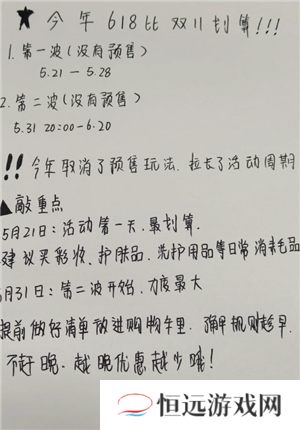 ★ 今年618比双11划算!!!
1.第一波(没有预售)
5.21 — 5.28
2.第二波(没有预售)
5.31 20:00-6.20
!! 今年取消了预售玩法,拉长了活动周期
▲敲重点
5月21日:活动第一天,最划算.
建议买彩妆、护肤品、洗护用品等日常消耗品
5月31日:第二波开始,力度最大
提前做好清单放进购物车里.
规则趁早,
不赶晚.越晚优惠越少哦!
恒远游戏网